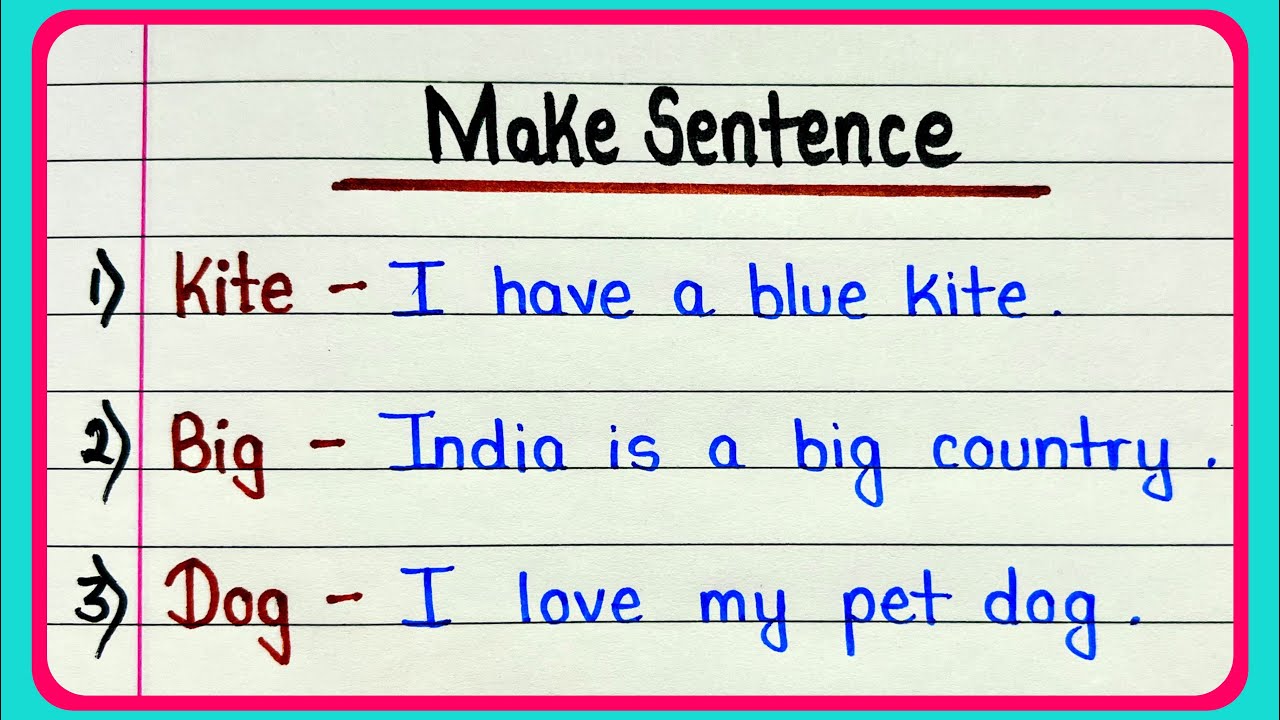 Make Sentence
1) Kite - I have a blue kite.
2) Big - India is a big country.
3) Dog - I love my pet dog.